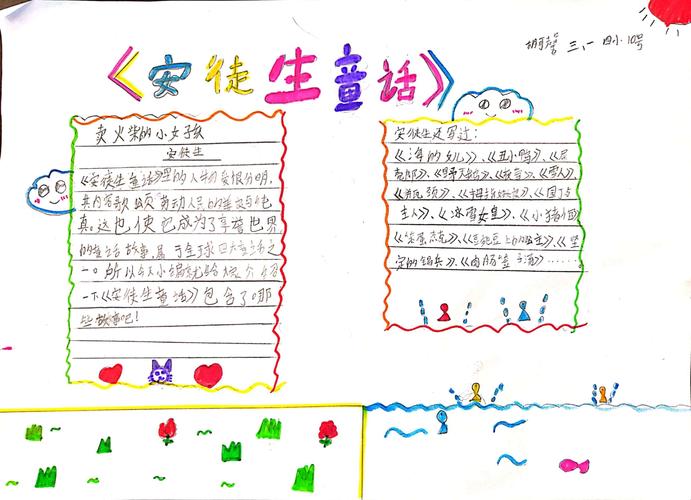 《安徒生童话》
三、一 四小 10号
卖火柴的小女孩
安徒生
《安徒生童话》里的人物爱恨分明,
其内容歌颂劳动人民的善良与纯
真。这也使它成为了享誉世界
的童话故事,属于全球四大童话之
一。所以今天小编就给大家介绍
一下《安徒生童话》包含了哪
些故事吧!
安徒生还写过:
《海的女儿》、《丑小鸭》、
《野天鹅》、《雪人》、
《国王与
主人》、《冰雪女皇》、《小猪
《笨蛋杰克》、《豌豆上的公主》、《坚
定的锡兵》、《肉肠